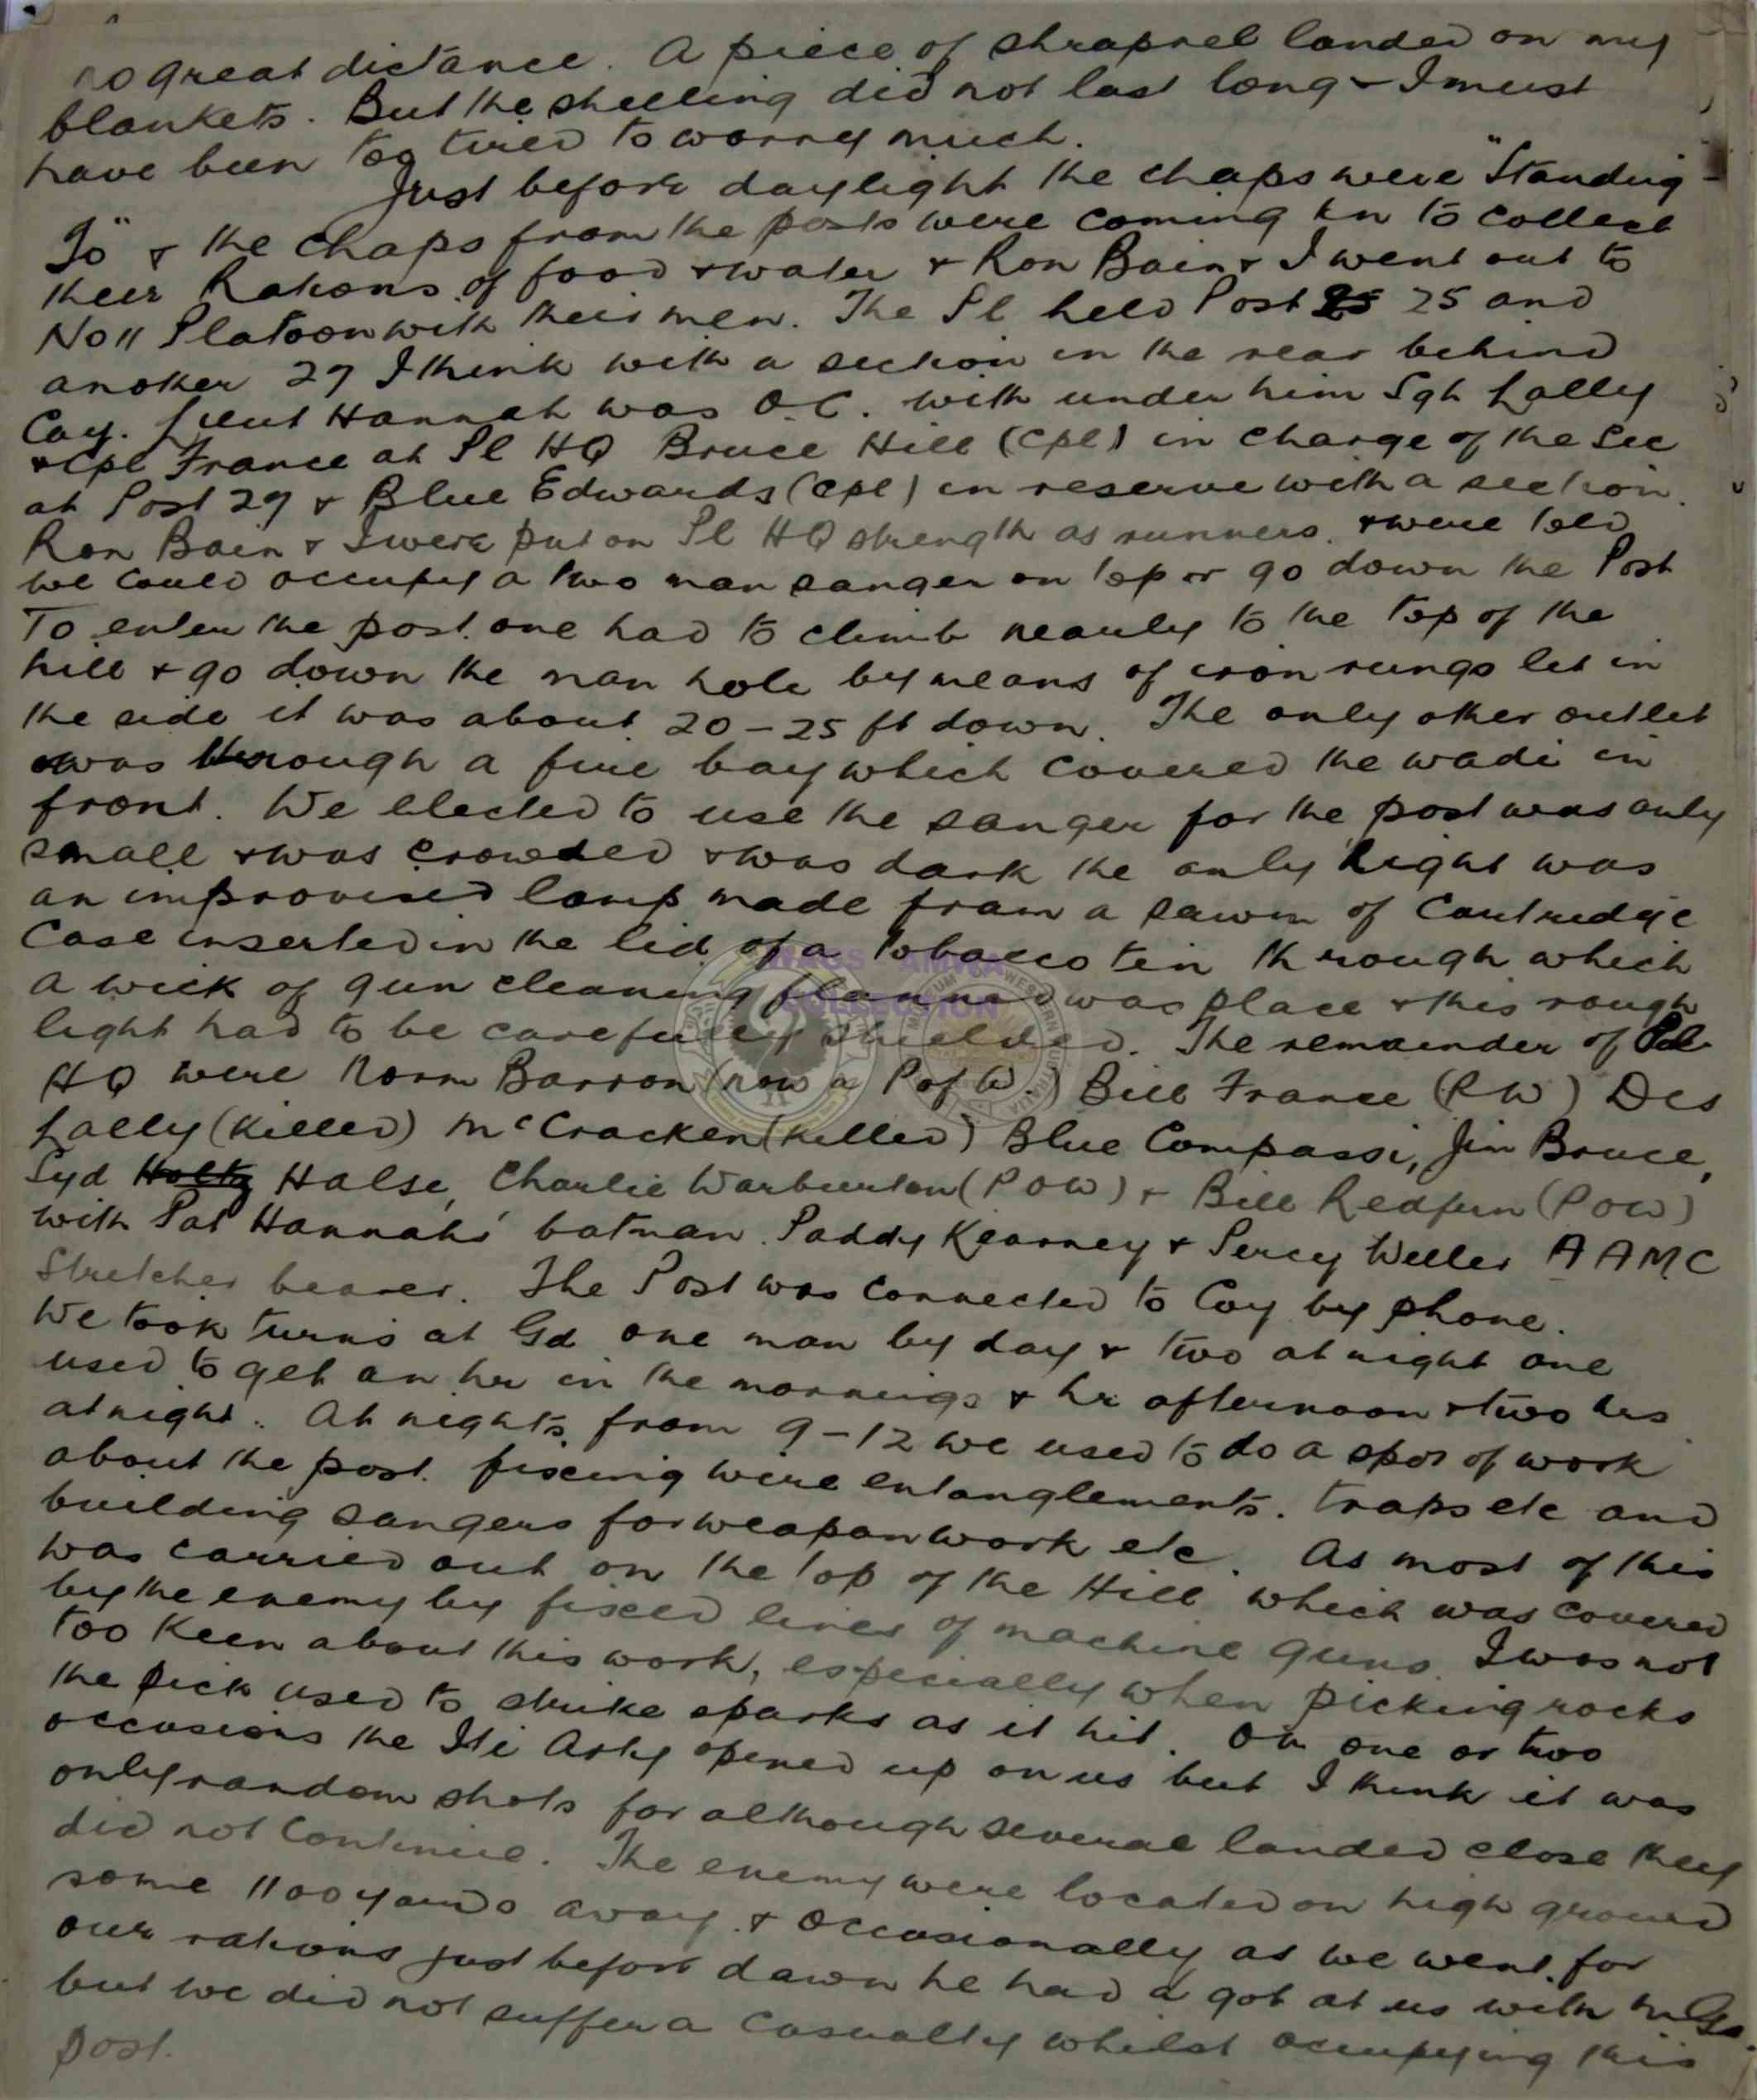 no great distance. A piece of shrapnel landed on my
blankets. But the shelling did not last long & I must
have been too tired to worry much.
Just before daylight the chaps were "Standing
To" & the chaps from the posts were coming in to collect
their Rations of food & water & Ron Bain & I went out to
No 11 Platoon with their men. The Pl held Post 25 and
another 29 I think with a section in the rear behind
Coy. Lieut Hannah was O.C. with under him Sgt Lally
& Cpl France at Pl HQ Bruce Hill (Cpl) in charge of the Sec
at Post 29 & Blue Edwards (Cpl) in reserve with a section.
Ron Bain & I were put on Pl HQ strength as runners. & were told
we could occupy a two man sanger on top or go down the Post
To enter the post one had to climb nearly to the top of the
hill & go down the man hole by means of iron rungs let in
the side it was about 20-25 ft down. The only other outlet
was through a fire bay which covered the wadi in
front. We elected to use the sanger for the post was only
small & was crowded & was dark the only light was
an improvised lamp made from a sawn of Cartridge
Case inserted in the lid of a tobacco tin through which
a wick of gun cleaning flannel was place & this rough
light had to be carefully shielded. The remainder of Pl
HQ were Norm Barron (now a P of W.) Bill France (PW) Des
Lally (Killed) McCracken (Killed) Blue Compassi, Jim Bruce,
Syd Holtz Halse, Charlie Warburton (POW) & Bill Redfern (POW)
with Pat Hannahs' batman Paddy Kearney & Percy Weller AAMC
Stretcher bearer. The Post was connected to Coy by phone.
We took turns at Gd one man by day & two at night one
used to get an hr in the mornings & hr afternoon & two hrs
at night. At nights from 9-12 we used to do a spot of work
about the post. fixing wire entanglements. traps etc and
building sangers for weapon work etc. As most of this
was carried out on the top of the Hill which was covered
by the enemy by fixed lines of machine guns I was not
too keen about this work, especially when picking rocks
the pick used to strike sparks as it hit. On one or two
occasions the Iti Arty opened up on us but I think it was
only random shots for although several landed close they
did not continue. The enemy were located on high ground
some 1100 yards away. & occasionally as we went for
our rations just before dawn he had a got at us with MGs.
but we did not suffer a casualty whilst occupying this
post.